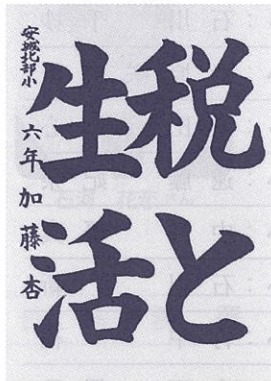 税と
生活
安城北部小 六年 加藤杏